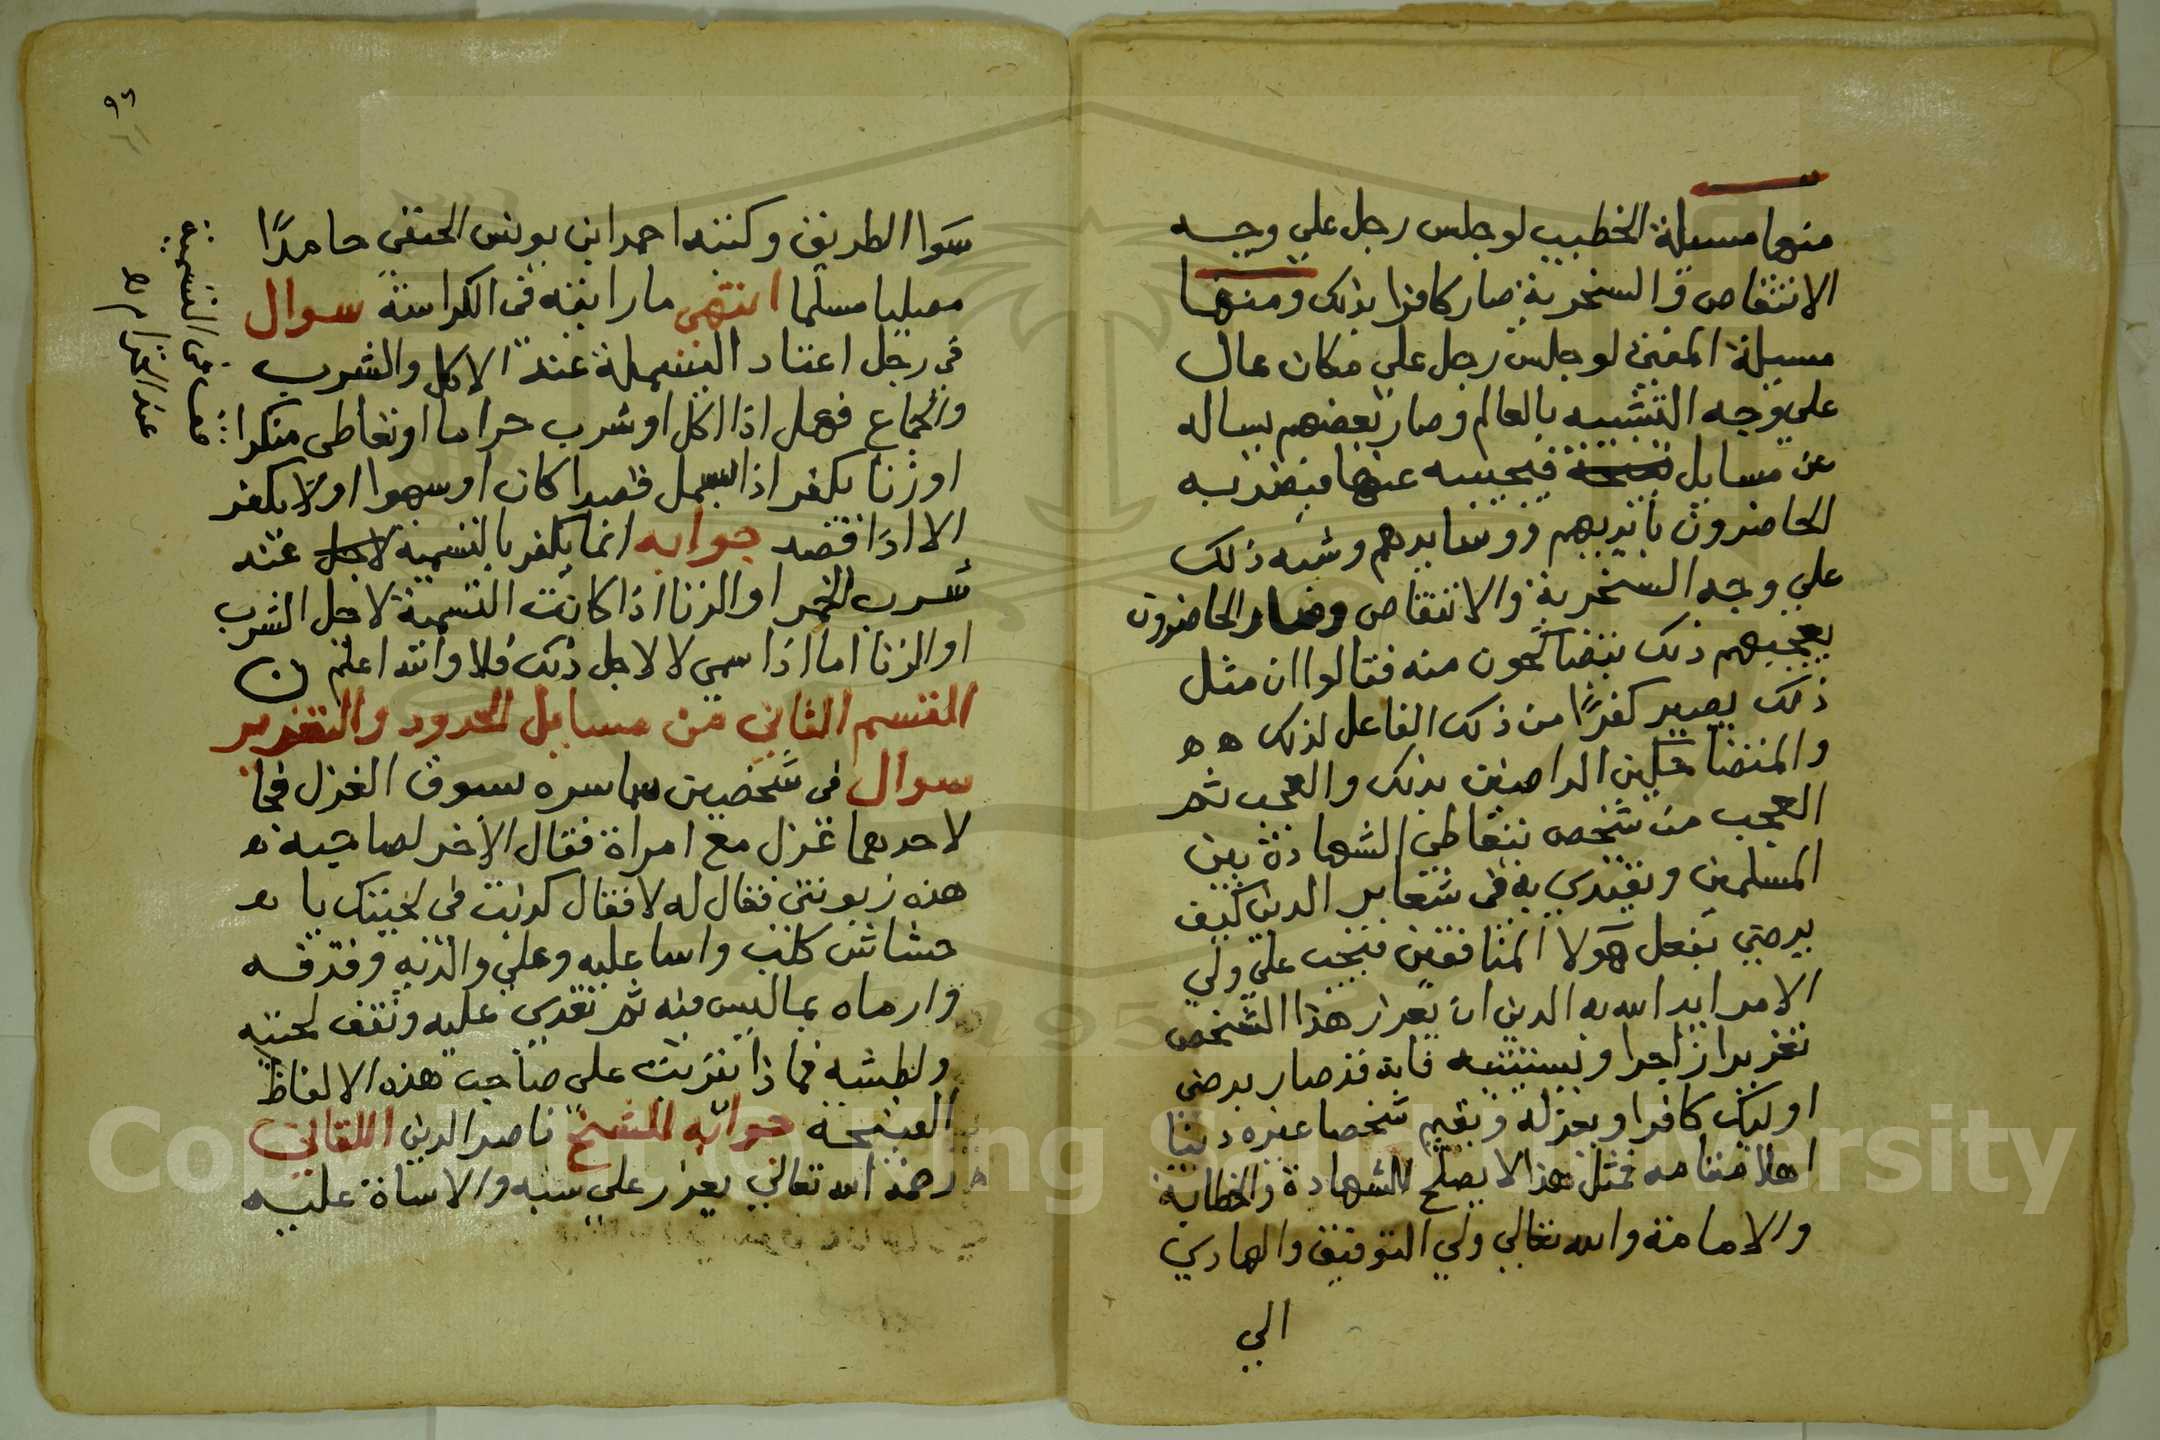 منها مسيلة الخطيب لو جلس رجل علي وجه
الانتقاص والسخرية صار كافرا بذلك ومنها
مسيلة المفتي لو جلس رجل علي مكان عال
علي وجه التشبيه بالعالم وصار بعضهم يساله
عن مسايل فيجيبه عنها فيضربه
الحاضرون بايديهم ووسايدهم وشبه ذلك
علي وجه السخرية والانتقاص وصار الحاضرون
يعجبهم ذلك يتضاحكون منه فقالوا ان مثل
ذلك يصير كفرًا من ذلك الفاعل لذلك ه ه
والمتضاحكين الراضين بذلك والعجب ثم
العجب من شخص يتعاطي الشهادة بين
المسلمين ويقتدي به في شعاير الدين كيف
يرضي بفعل هولا المنافقين فيجب علي ولي
الامر ايد الله به الدين ان يعزر هذا الشخص
تعزيرا زاجرا ويستتيبه فانه قد صار يرضى
اوليك كافرا ويعزله ويقيم شخصا غيره دينا
اهلا مقامه فمثل هذا لا يصلح للشهادة والخطابة
والامامة والله تعالي ولي التوفيق والهادي
الي
٩٦
سوا الطريق وكتبه احمد ابن يونس الحنفي حامدًا
مصليا مسلما انتهى ما رايته في الكراسة سوال
في رجل اعتاد البسملة عند الاكل والشرب
والجماع فهل اذا اكل او شرب حراما او تعاطى منكرا
او زنا يكفر اذا بسمل قصدا كان او سهوا او لا يكفر
الا اذا قصد جوابه انما يكفر بالتسمية لاجل عند
شرب الخمر او الزنا اذا كانت التسمية لاجل الشرب
او الزنا اما اذا سمي لا لاجل ذلك فلا والله اعلم
القسم الثاني من مسايل الحدود والتعزير
سوال في شخصين سماسره بسوق الغزل فجا
لاحدهما غزل مع امراة فقال الاخر لصاحبه
هذه زبونتي فقال له لا فقال كدبت في لحيتك يا
حشاش كلب واسا عليه وعلي والديه وقذفه
وارماه بما ليس فيه ثم تعدي عليه ونتف لحيته
ولطشه فماذا يترتب على صاحب هذه الالفاظ
القبيحة جوابه للشيخ ناصر الدين اللقاني
رحمة الله تعالي يعزر علي سبه والاساة عليه
مطلب في التسمية
عند الحرام
Copyright © King Saud University